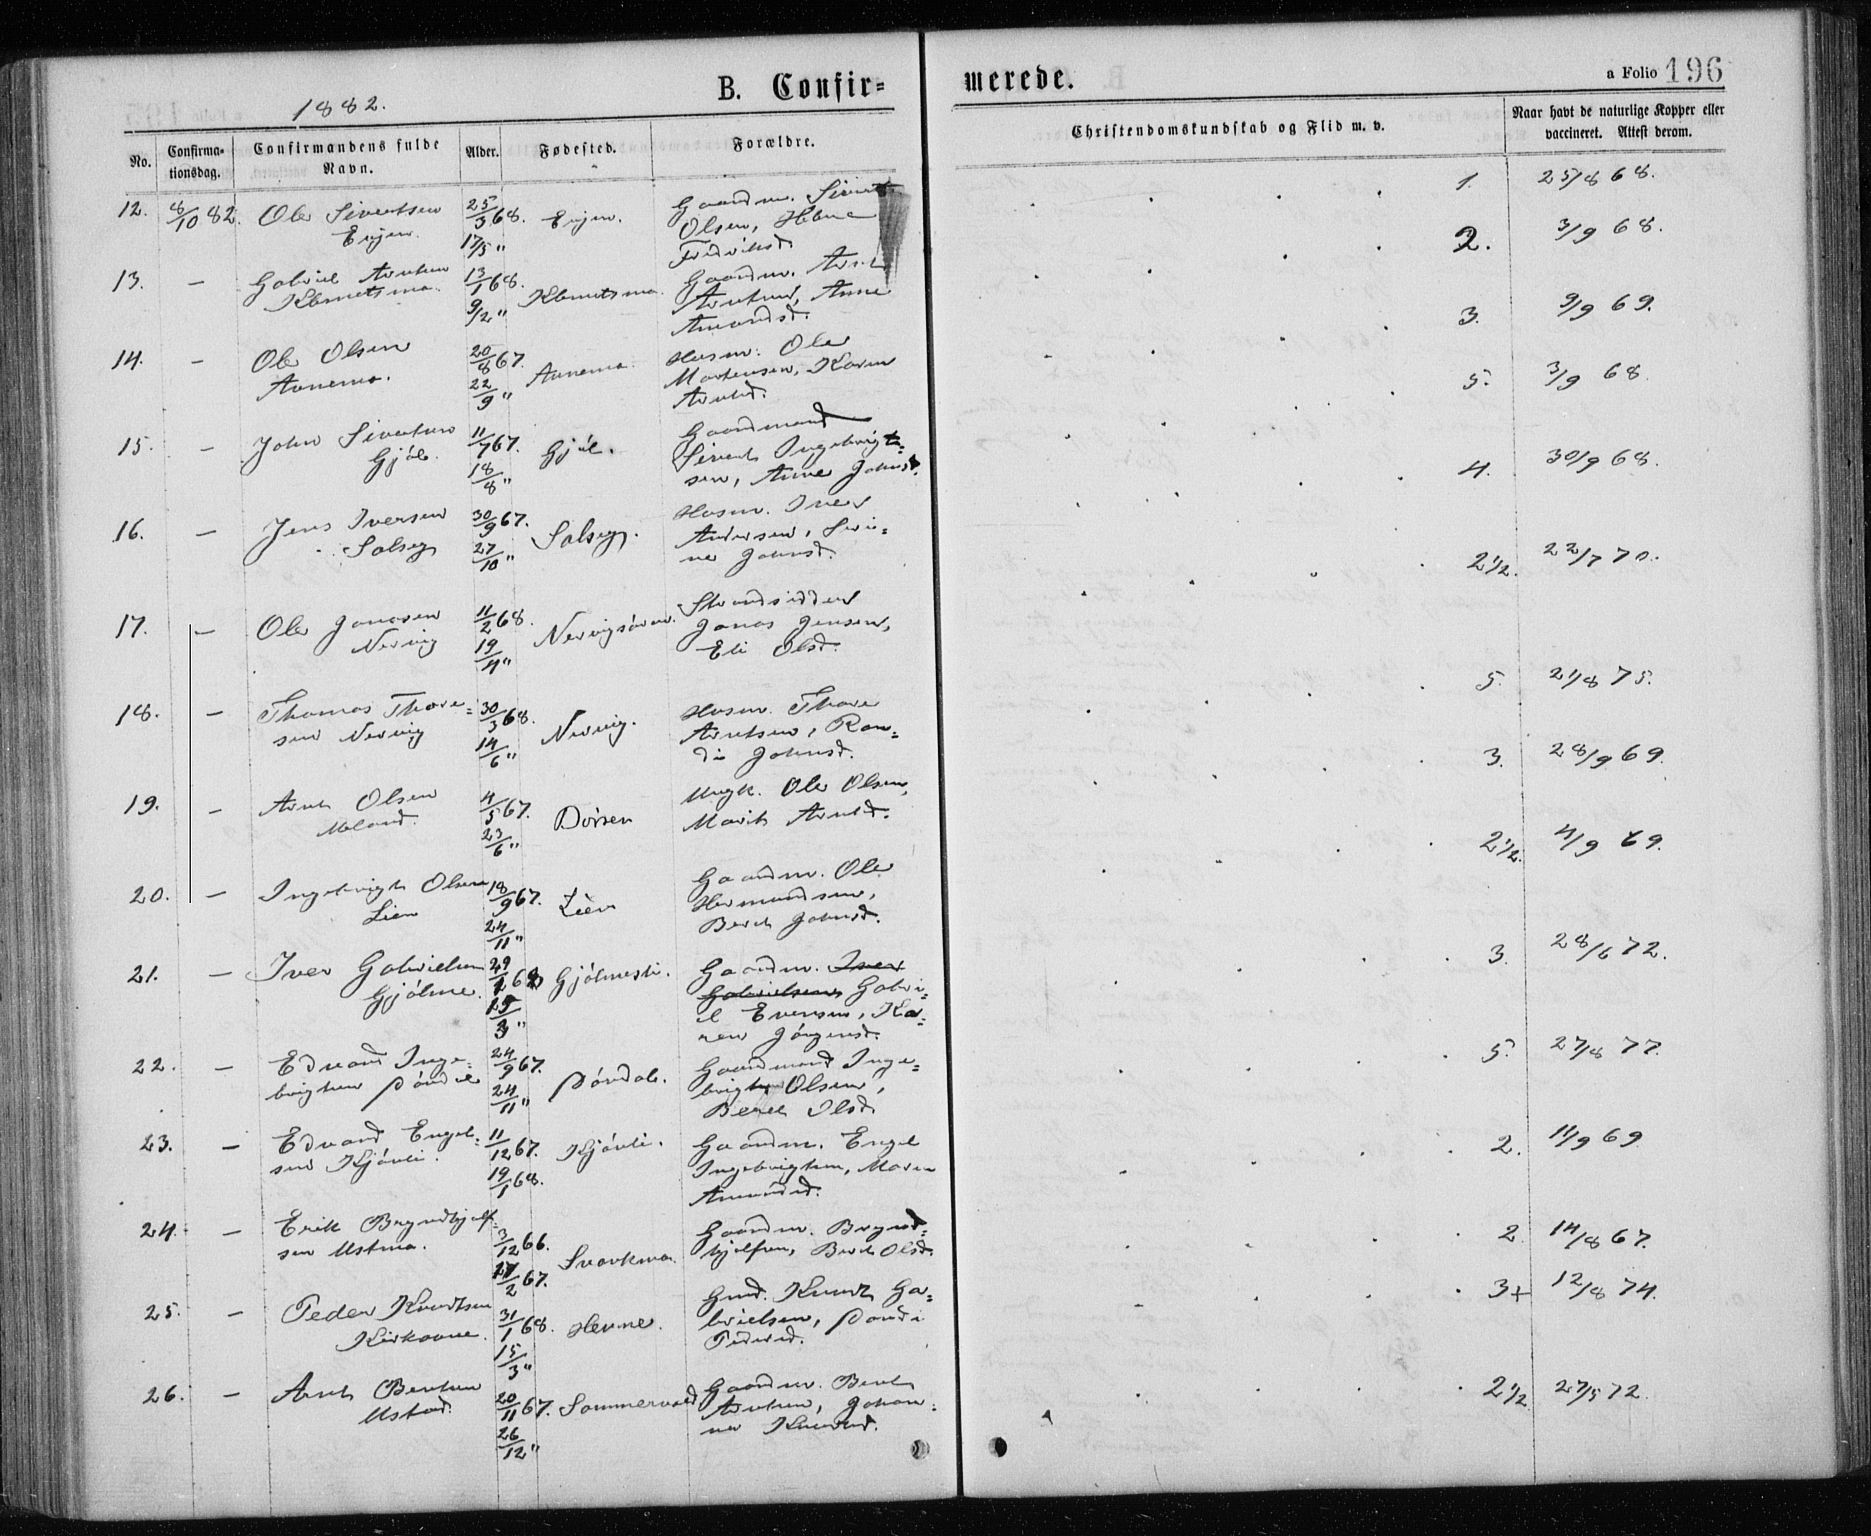 B. Confir=
merede.
a Folio 196
1882.
No.
Confirma-
tionsdag.
Confirmandens fulde
Navn.
Alder.
Fødested.
Forældre.
Christendomskundskab og Flid m. v.
Naar havt de naturlige Kopper eller
vaccineret. Attest derom.
12. 8/10 82. Ole Sivertsen 25/3 68. Evjen. Gaardm. Sivert 1. 25/8 68.
Evjen. 17/5 " Olsen,
Fredriksd.
13. — Gabriel Arntsen 13/1 68. Gaardm. Arnt 2. 3/9 68.
9/2 " Arntsen, Anne
Amundsd.
14. — Ole Olsen 20/8 67. Husm. Ole 3. 9/9 69.
22/9 " Mortensen, Karen
Arntsd.
15. — John Sivertsen 11/7 67. Gjöl. Gaardmand 5. 3/9 68.
Gjöl. 18/8 " Sivert Ingebrigt=
sen, Anne Johnsd.
16. — Jens Iversen 30/9 67. Solseg. Husm. Iver 4. 30/9 68.
Solseg 27/10 " Andersen,
ne Johnsd.
17. — Ole Jonasen 11/2 68. Strandsidder 2 1/2. 22/7 70.
Nervig 19/4 " Jonas Jensen,
Eli Olsd.
18. — Thomas Thore= 30/3 68. Nervig. Husm. Thore 5. 21/8 75.
sen Nervig 14/6 " Arntsen, Ran=
di Johnsd.
19. — Arnt Olsen 4/5 67. Ungk. Ole Olsen, 3. 28/9 69.
Meland. 23/6 " Marit Arntsd.
20. — Ingebrigt Olsen 18/9 67. Lien Gaardm. Ole 2 1/2. 4/9 69.
Lien 24/11 " Hermundsen,
Beret Johnsd.
21. — Iver Gabrielsen Gjölmesli. Gaardm. Iver 3. 28/6 72.
Gjölme. Gabrielsen Gabri=
el Evensen, Ka=
ren Jörgensd.
22. — Edvard Inge= 24/9 67. Gaardmand Inge= 5. 27/8 77.
brigtsen 24/11 " brigt Olsen,
Beret Olsd.
23. — Edvard Engel= 11/12 67. Kjönli. Gaardm. Engel 2. 11/9 69
sen Kjönli. 19/1 68. Ingebrigtsen, Maren
Amundsd.
24. — Erik Bryndhjelf= 3/12 66. Svorkmo. Gaardm. Brynd= 2 14/8 67.
sen Ustmo. 17/2 67. hjelfsen, Beret Olsd.
25. — Peder Knudtsen 31/1 68. Hevne. Knudt Ga= 3+ 12/8 74.
Kirkovne. 15/3 " brielsen,
Pedersd.
26. — Arnt Bentsen 20/11 67. Sommervold Gaardm. Bent 2 1/2 27/5 72.
Ustad. 26/12 " Arntsen, Johan=
ne Knudtsd.